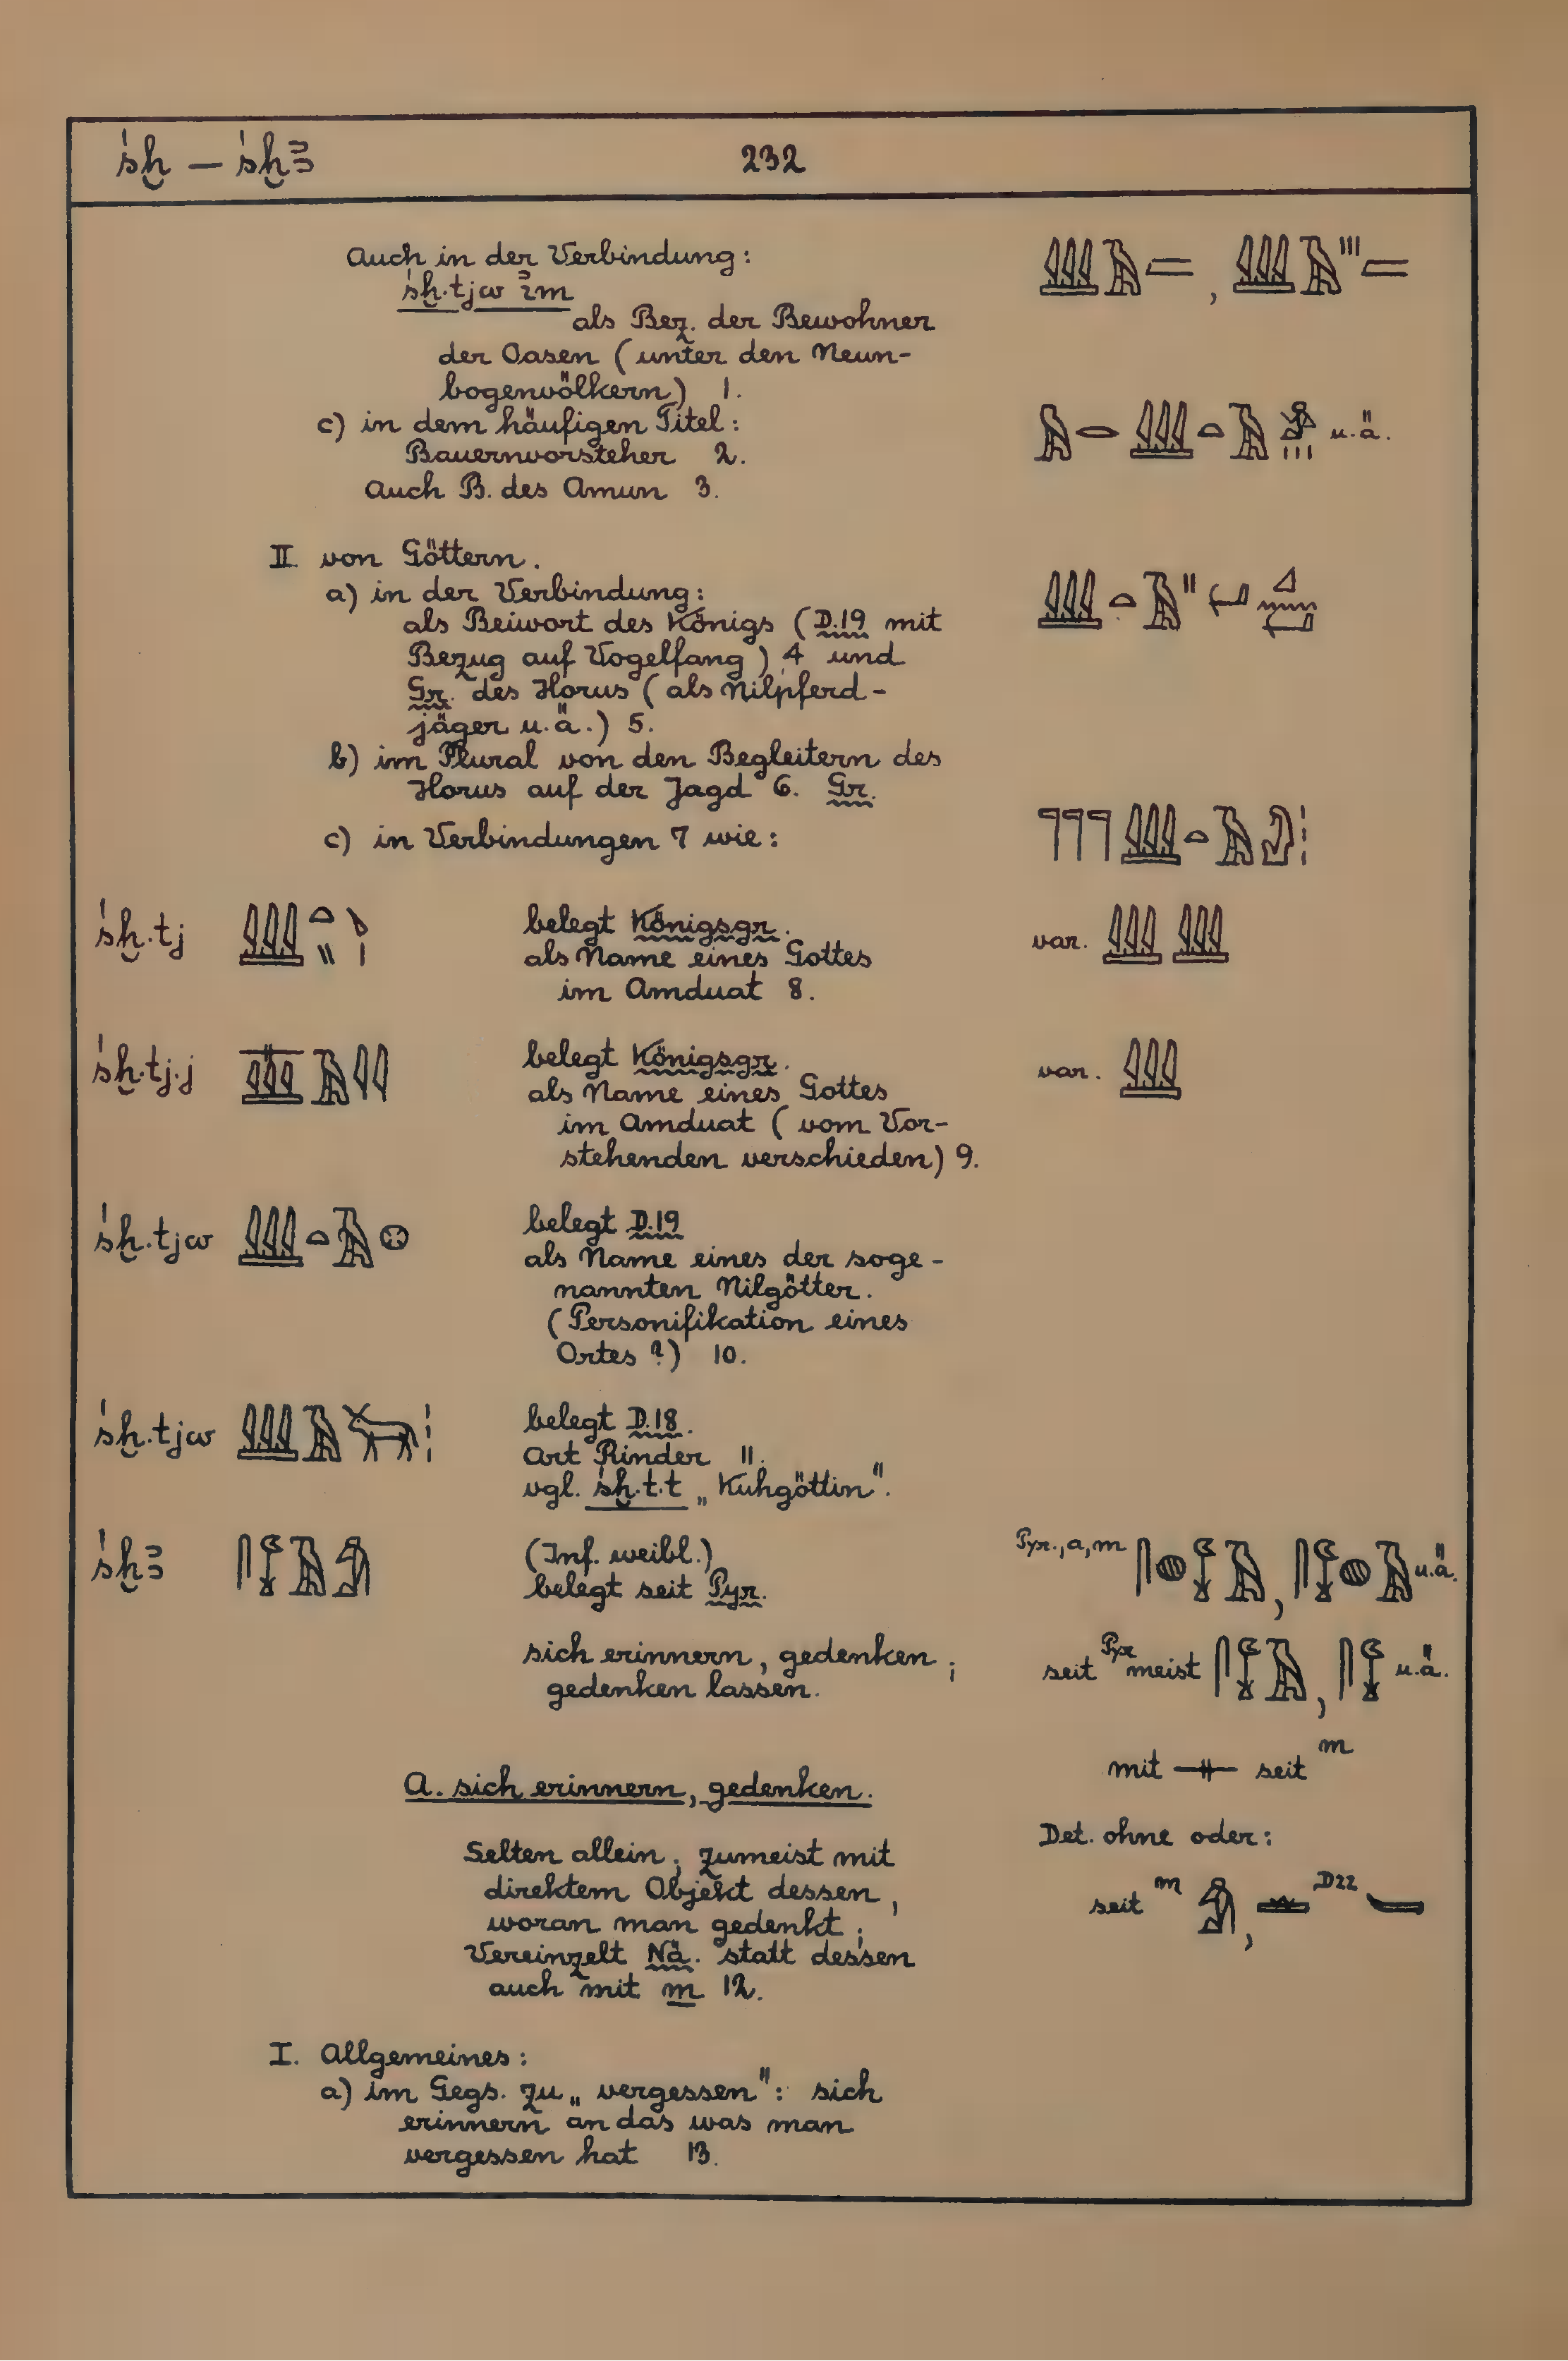 śḫ — śḫꜣ 232
Auch in der Verbindung:
śḫ.tjw ı͗ꜣm
als Bez. der Bewohner
der Oasen (unter den Neun-
bogenvölkern) 1.
c) in dem häufigen Titel:
Bauernvorsteher 2. u.ä.
Auch B. des Amun 3.
II von Göttern.
a) in der Verbindung:
als Beiwort des Königs (D.19 mit
Bezug auf Vogelfang) 4 und
Gr. des Horus (als Nilpferd-
jäger u.ä.) 5.
b) im Plural von den Begleitern des
Horus auf der Jagd 6. Gr.
c) in Verbindungen 7 wie:
śḫ.tj belegt Königsgr. var.
als Name eines Gottes
im Amduat 8.
śḫ.tj.j belegt Königsgr. var.
als Name eines Gottes
im Amduat (vom Vor-
stehenden verschieden) 9.
śḫ.tjw belegt D.19
als Name eines der soge-
nannten Nilgötter.
(Personifikation eines
Ortes?) 10.
śḫ.tjw belegt D.18.
Art Rinder 11.
vgl. śḫ.t.t „Kuhgöttin".
śḫꜣ (Inf. weibl.) Pyr., a, m , u.ä.
belegt seit Pyr.
sich erinnern, gedenken; seit Pyr meist , u.ä.
gedenken lassen.
mit seit m
A. sich erinnern, gedenken.
Det. ohne oder:
Selten allein; zumeist mit
direktem Objekt dessen, seit m , D22
woran man gedenkt;
Vereinzelt Nä. statt dessen
auch mit m 12.
I. Allgemeines:
a) im Gegs. zu „vergessen": sich
erinnern an das was man
vergessen hat 13.